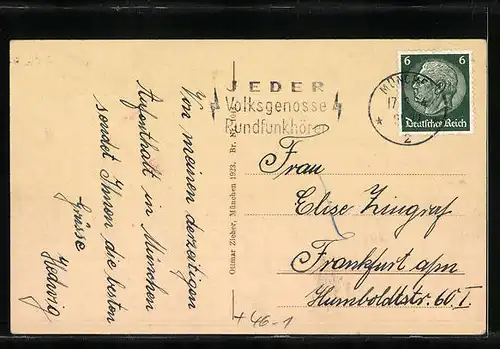 Von meinen derzeitigen
Aufenthalt in München
sendet Ihnen die besten
Grüsse
Hedwig
Ottmar Zieher, München 1923. Br.
JEDER
Volksgenosse
Rundfunkhörer
MÜNCHEN
17
2
6 6
Deutsches Reich
Frau
Elise Zingraf
Frankfurt a/m
Humboldtstr. 60 I.
+ 46-1